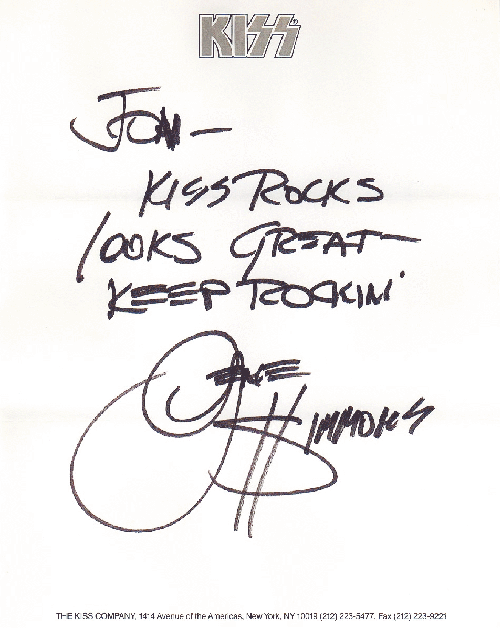 KISS
JON—
KISS ROCKS
LOOKS GREAT—
KEEP ROCKIN'
GENE
SIMMONS
THE KISS COMPANY, 1414 Avenue of the Americas, New York, NY 10019 (212) 223-5477, Fax (212) 223-9221